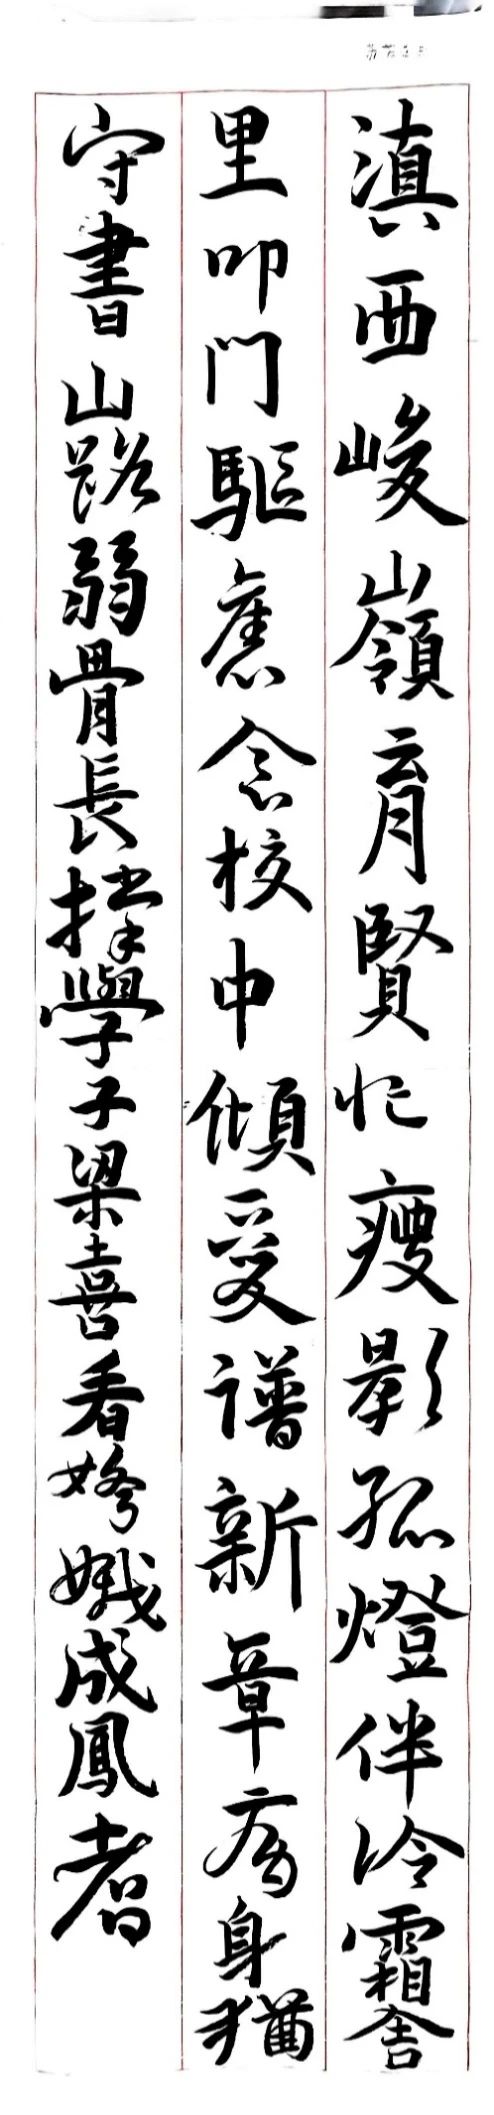 滇西峻嶺育賢忙瘦影孤燈伴冷霜舍
里叩門驅念校中傾愛譜新章病身猶
守書山路弱骨長撑學子梁喜看嬌娥成鳳者